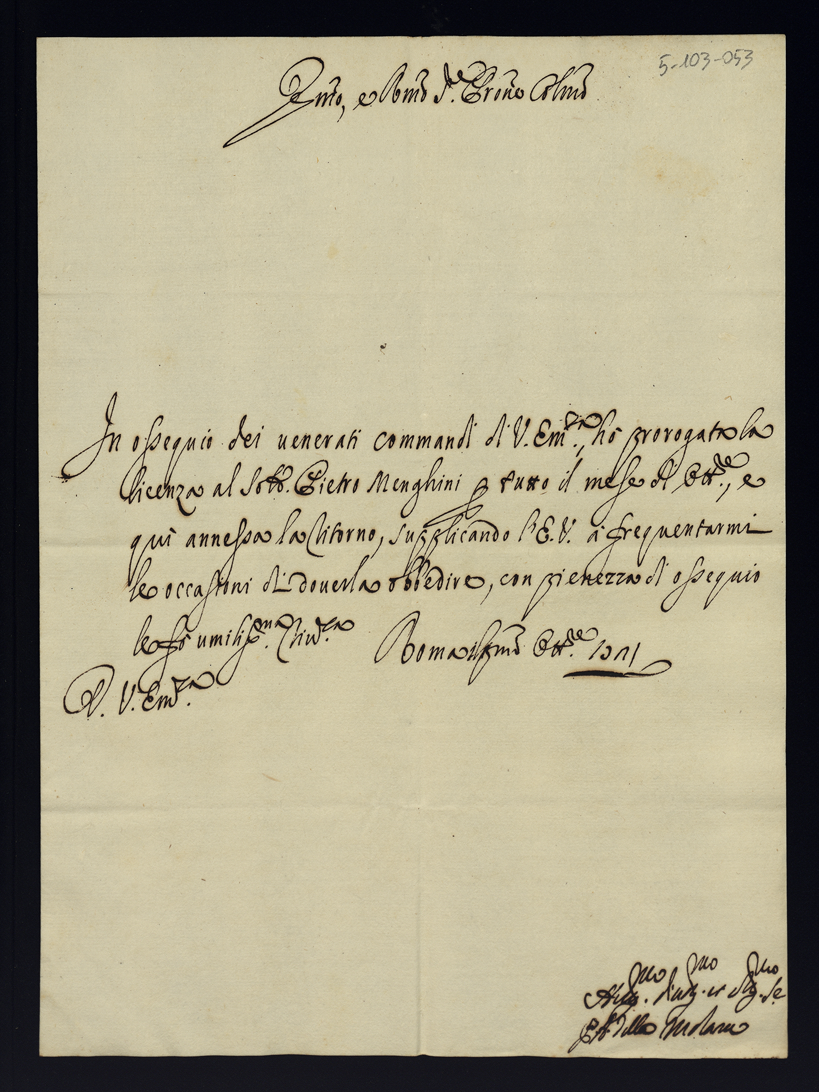 5-103-053
Emo, e Rmo Sre. Prone Colmo
In ossequio dei venerati commandi di V. Emza, hò prorogata la
licenza al Sold. Pietro Menghini p tutto il mese di Ottre, e
quì annessa la ritorno, supplicando l'E.V. à frequentarmi
le occasioni di doverla obbedire, con pienezza di ossequio
le fò umilissma. riverza
Roma Ottre.
D. V. Emza.